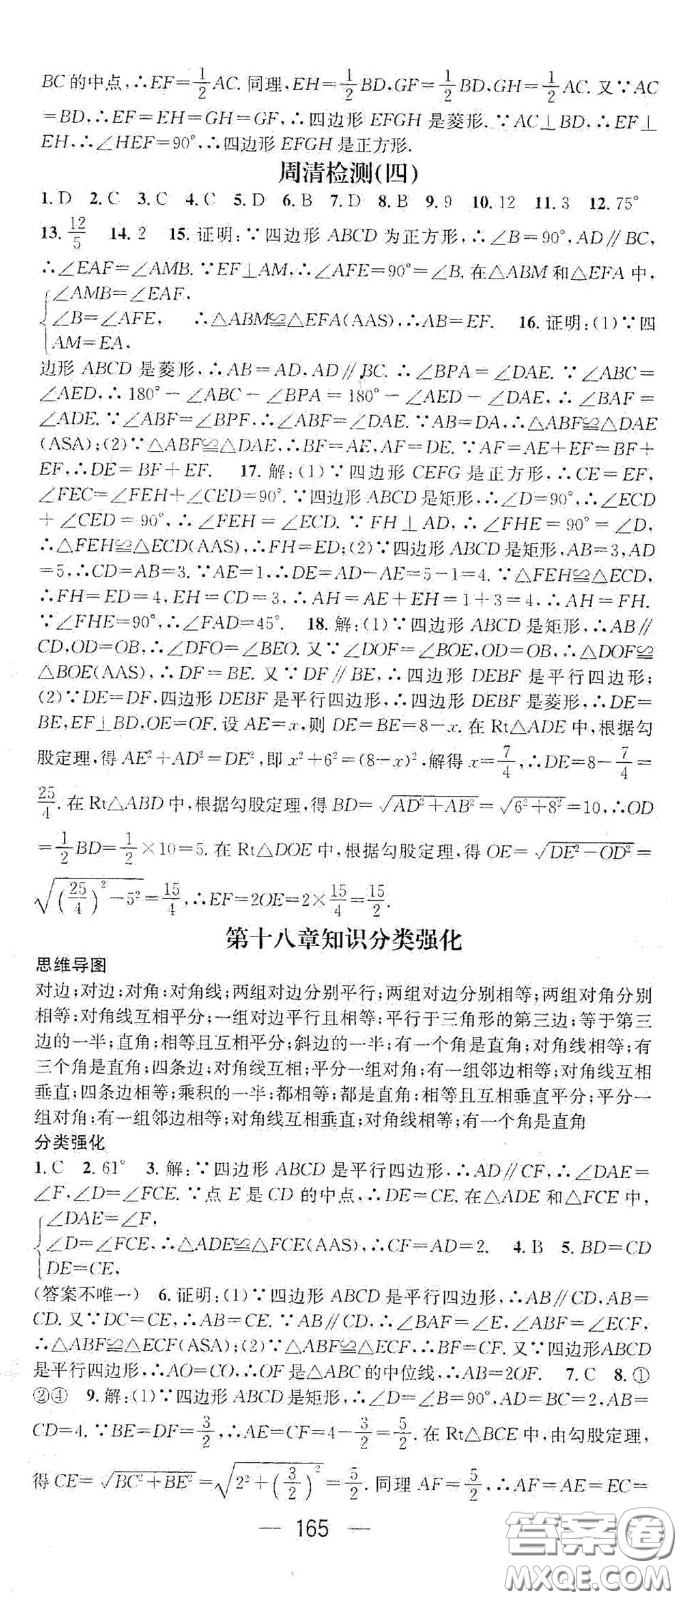 BC的中点,∴EF=1/2AC.同理,EH=1/2BD,GF=1/2BD,GH=1/2AC.又∵AC
=BD,∴EF=EH=GH=GF,∴四边形EFGH是菱形.∵AC⊥BD,∴EF⊥
EH,∴∠HEF=90°,∴四边形EFGH是正方形.
周清检测(四)
1.D 2.C 3.C 4.C 5.D 6.B 7.D 8.B 9.9 10.12 11.3 12.75°
13.12/5 14.2 15.证明:∵四边形ABCD为正方形,∴∠B=90°,AD∥BC,
∴∠EAF=∠AMB.∵EF⊥AM,∴∠AFE=90°=∠B.在△ABM和△EFA中,
∠AMB=∠EAF,
∠B=∠AFE, ∴△ABM≌△EFA(AAS),∴AB=EF. 16.证明:(1)∵四
AM=EA,
边形ABCD是菱形,∴AB=AD,AD∥BC.∴∠BPA=∠DAE.∵∠ABC=
∠AED,∴180°-∠ABC-∠BPA=180°-∠AED-∠DAE,∴∠BAF=
∠ADE.∵∠ABF=∠BPF,∴∠ABF=∠DAE.∵AB=DA,∴△ABF≌△DAE
(ASA);(2)∵△ABF≌△DAE,∴BF=AE,AF=DE.∵AF=AE+EF=BF+
EF,∴DE=BF+EF. 17.解:(1)∵四边形CEFG是正方形,∴CE=EF,
∠FEC=∠FEH+∠CED=90°.∵四边形ABCD是矩形,∴∠D=90°,∠ECD
+∠CED=90°,∴∠FEH=∠ECD.∵FH⊥AD,∴∠FHE=90°=∠D,
∴△FEH≌△ECD(AAS),∴FH=ED;(2)∵四边形ABCD是矩形,AB=3,AD
=5,∴CD=AB=3.∵AE=1,∴DE=AD-AE=5-1=4.∵△FEH≌△ECD,
∴FH=ED=4,EH=CD=3,∴AH=AE+EH=1+3=4,∴AH=FH.
∵∠FHE=90°,∴∠FAD=45°. 18.解:(1)∵四边形ABCD是矩形,∴AB∥
CD,OD=OB,∴∠DFO=∠BEO.又∵∠DOF=∠BOE,OD=OB,∴△DOF≌
△BOE(AAS),∴DF=BE.又∵DF∥BE,∴四边形DEBF是平行四边形;
(2)∵DE=DF,四边形DEBF是平行四边形,∴四边形DEBF是菱形,∴DE=
BE,EF⊥BD,OE=OF.设AE=x,则DE=BE=8-x.在Rt△ADE中,根据勾
股定理,得AE²+AD²=DE²,即x²+6²=(8-x)²,解得x=7/4,∴DE=8-7/4=
25/4.在Rt△ABD中,根据勾股定理,得BD=√(AD²+AB²)=√(6²+8²)=10,∴OD
=1/2BD=1/2×10=5.在Rt△DOE中,根据勾股定理,得OE=√(DE²-OD²)=
√((25/4)²-5²)=15/4,∴EF=2OE=2×15/4=15/2.
第十八章知识分类强化
思维导图
对边;对边;对角;对角线;两组对边分别平行;两组对边分别相等;两组对角分别
相等;对角线互相平分;一组对边平行且相等;平行于三角形的第三边;等于第三
边的一半;直角;相等且互相平分;斜边的一半;有一个角是直角;对角线相等;有
三个角是直角;四条边;对角线互相;平分一组对角;有一组邻边相等;对角线互相
垂直;四条边相等;乘积的一半;都相等;都是直角;相等且互相垂直平分;平分一
组对角;有一组邻边相等;对角线互相垂直;对角线相等;有一个角是直角
分类强化
1.C 2.61° 3.解:∵四边形ABCD是平行四边形,∴AD∥CF,∴∠DAE=
∠F,∠D=∠FCE.∵点E是CD的中点,∴DE=CE.在△ADE和△FCE中,
∠DAE=∠F,
∠D=∠FCE,∴△ADE≌△FCE(AAS),∴CF=AD=2. 4.B 5.BD=CD
DE=CE,
(答案不唯一) 6.证明:(1)∵四边形ABCD是平行四边形,∴AB∥CD,AB=
CD.又∵DC=CE,∴AB=CE.∵AB∥CD,∴∠BAF=∠E,∠ABF=∠ECF,
∴△ABF≌△ECF(ASA);(2)∵△ABF≌△ECF,∴BF=CF.又∵四边形ABCD
是平行四边形,∴AO=CO,∴OF是△ABC的中位线,∴AB=2OF. 7.C 8.①
②④ 9.解:(1)∵四边形ABCD是矩形,∴∠D=∠B=90°,AD=BC=2,AB=
CD=4.∵BE=DF=3/2,∴AE=CF=4-3/2=5/2.在Rt△BCE中,由勾股定理,
得CE=√(BC²+BE²)=√(2²+(3/2)²)=5/2.同理AF=5/2,∴AF=AE=EC=
— 165 —
答案圈
MXQE.COM